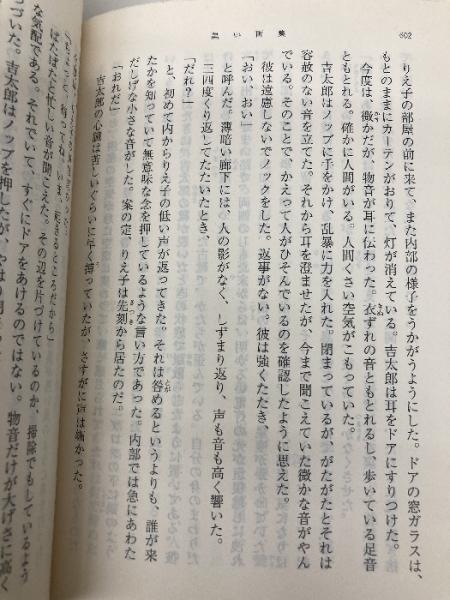 602
黒い画集
りえ子の部屋の前に来て、また内部の様子をうかがうようにした。ドアの窓ガラスは、
もとのままにカーテンがおりて、灯が消えている。吉太郎は耳をドアにすりつけた。
今度は、微かだが、物音が耳に伝わった。衣ずれの音ともとれるし、歩いている足音
ともとれる。確かに人間がいる。人間くさい空気がこもっていた。
吉太郎はノップに手をかけ、乱暴に力を入れた。閉まっているが、がたがたとそれは
容赦のない音を立てた。それから耳を澄ませたが、今まで聞こえていた微かな音がやん
でいる。そのことで、かえって人がひそんでいるのを確認したように思えた。
彼は遠慮しないでノックをした。返事がない。彼は強くたたき、
「おい、おい」
と呼んだ。薄暗い廊下には、人の影がなく、しずまり返り、声も音も高く響いた。
三四度くり返してたたいたとき、
「だれ？」
と、初めて内からりえ子の低い声が返ってきた。それは咎めるというよりも、誰が来
たかを知っていて無意味な念を押しているような言い方であった。内部では急にあわた
だしげな小さな音がした。案の定、りえ子は先刻から居たのだ。
「おれだ」
吉太郎の心臓は苦しいぐらいに早く搏っていたが、さすがに声は嗄かった。
ところだから」
ばたばたと忙しい音が聞こえた。その辺を片づけているのか、掃除でもしているよう
な気配である。それでいて、すぐにドアをあけるのではない。物音だけが大げさに高く
吉太郎はノップを押したが、